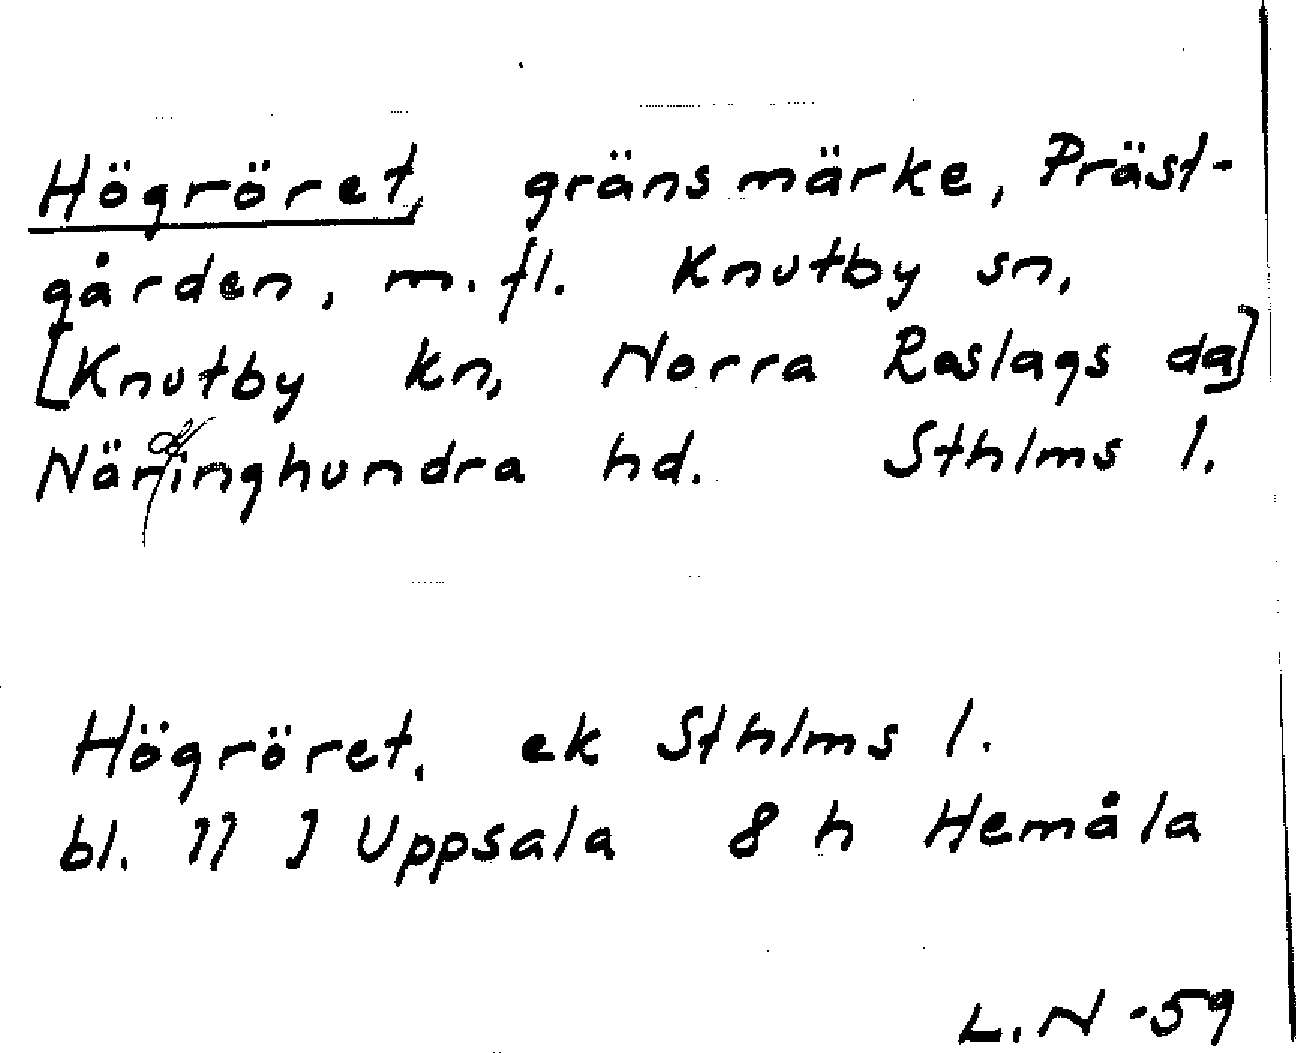 Högröret, gränsmärke, Präst-
gården, m.fl. Knutby sn,
[Knutby kn, Norra Roslags dg]
Närdinghundra hd. Sthlms l.
Högröret. ek Sthlms l.
bl. 11 J Uppsala 8 h Hemåla
L. N -59